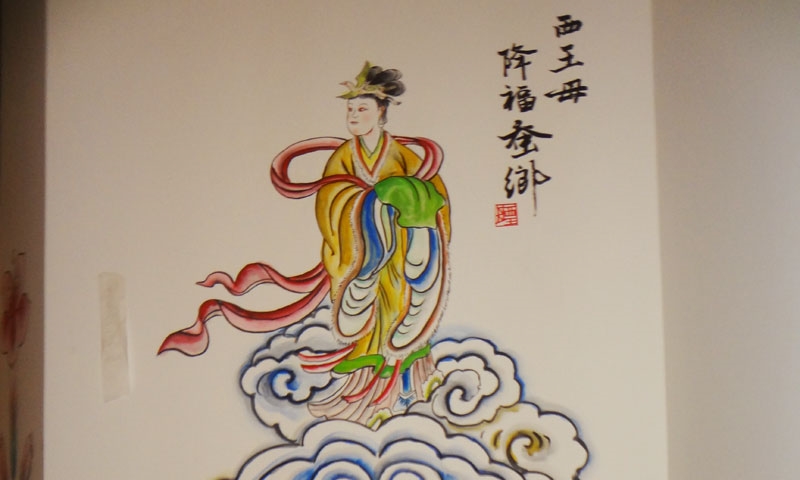 西王母
降福蚕鄉